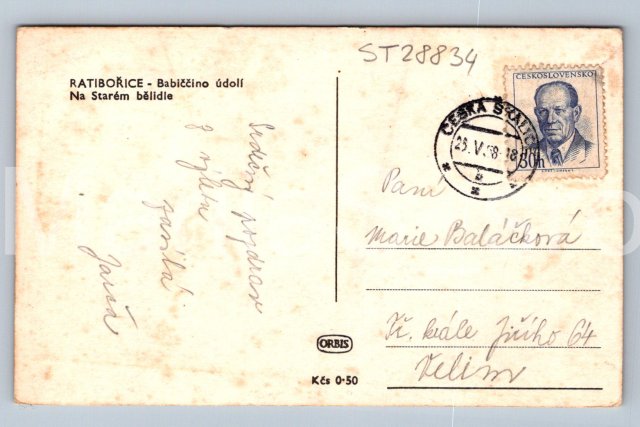 ST28834
RATIBOŘICE - Babiččino údolí
Na Starém bělidle
ČESKOSLOVENSKO
30h
ČESKÁ SKALICE
25.V.58-18
b
Srdečný pozdrav
z výletu
zasílá
Jarča
Paní
Marie Baláčková
Tř. krále Jiřího 64
Velim
ORBIS
Kčs 0·50